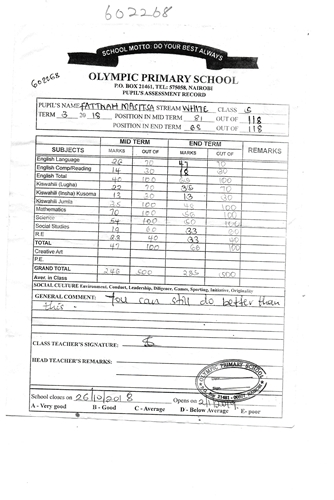 602268
SCHOOL MOTTO: DO YOUR BEST ALWAYS
602268
OLYMPIC PRIMARY SCHOOL
P.O. BOX 21461, TEL: 575058, NAIROBI
PUPIL'S ASSESSMENT RECORD
PUPIL'S NAME STREAM WHITE CLASS 5
TERM 3 2018 POSITION IN MID TERM 81 OUT OF 118
POSITION IN END TERM 68 OUT OF 118
MID TERM END TERM
SUBJECTS MARKS OUT OF MARKS OUT OF REMARKS
English Language 26 70 47 70
English Comp/Reading 14 30 18
English Total 40 100 65 100
Kiswahili (Lugha) 22 70 35 70
Kiswahili (Insha) Kusoma 13 30 13 30
Kiswahili Jumla 35 100 48 100
Mathematics 70 100 100
Science 54 100
Social Studies 19 60 33
R.E 40 33
TOTAL 47 100 66 100
Creative Art
P.E.
GRAND TOTAL 500
Aver. in Class
SOCIAL CULTURE Environment, Conduct, Leadership, Diligence, Games, Sporting, Initiative, Originality
GENERAL COMMENT: You can still do better than
this.
CLASS TEACHER'S SIGNATURE:
HEAD TEACHER'S REMARKS:
OLYMPIC PRIMARY SCHOOL
School closes on 26/10/2018 Opens on
A - Very good B - Good C - Average D - Below Average E- poor